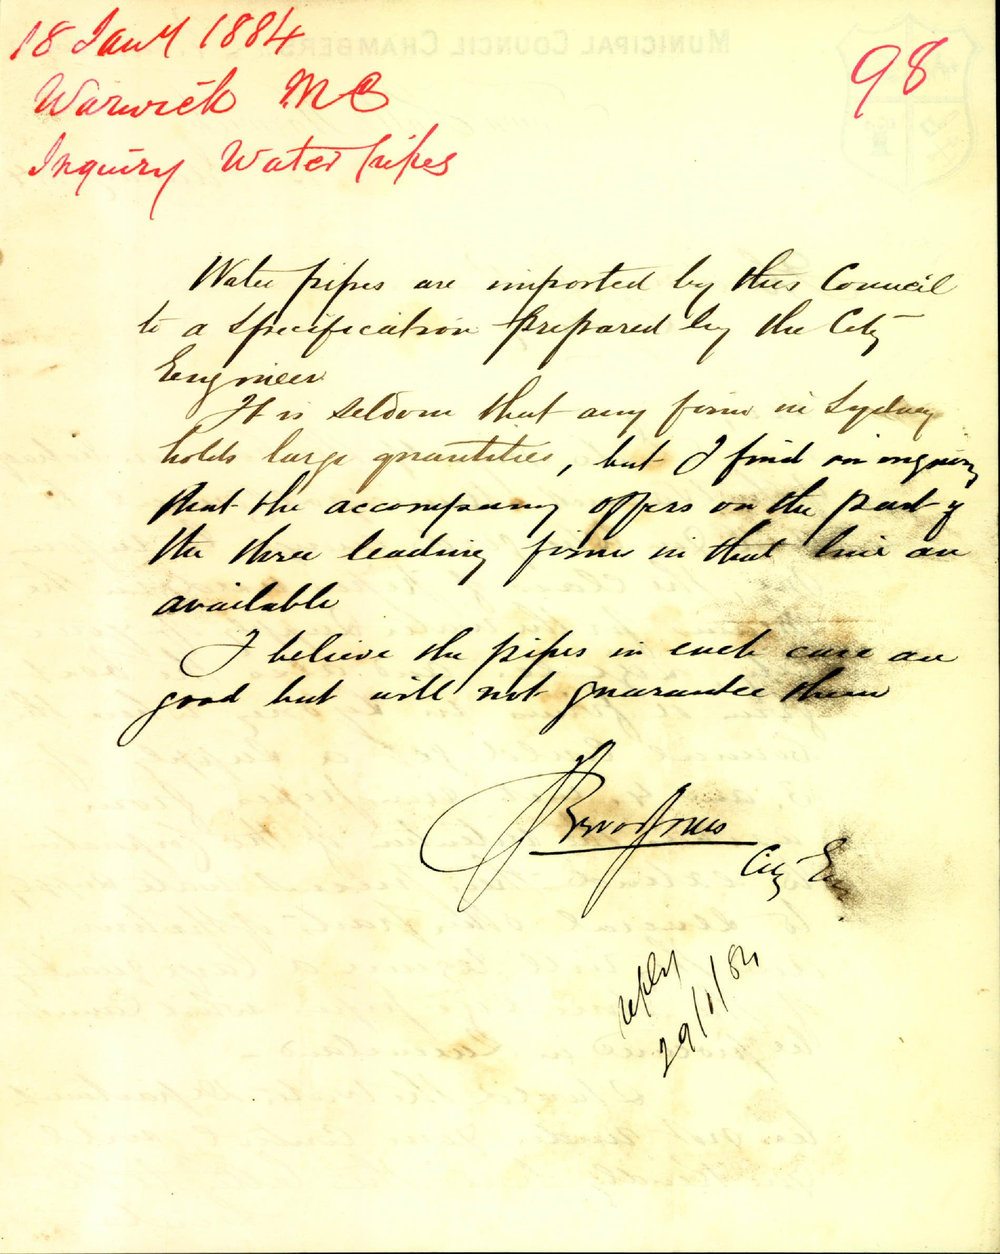 18 Jany 1884
98
Warwick M C
Inquiry Water pipes
Water pipes are imported by this Council
to a specification prepared by the City
Engineer
It is seldom that any firm in Sydney
holds large quantities, but I find on inquiry
that the accompany offers on the part of
the three leading firms in that line are
available
I believe the pipes in each case are
good but will not guarantee them
City Eng
reply
29/1/84
MUNICIPAL COUNCIL CHAMBERS